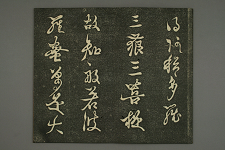 得阿耨多羅
三藐三菩提
故知般若波
羅蜜多是大